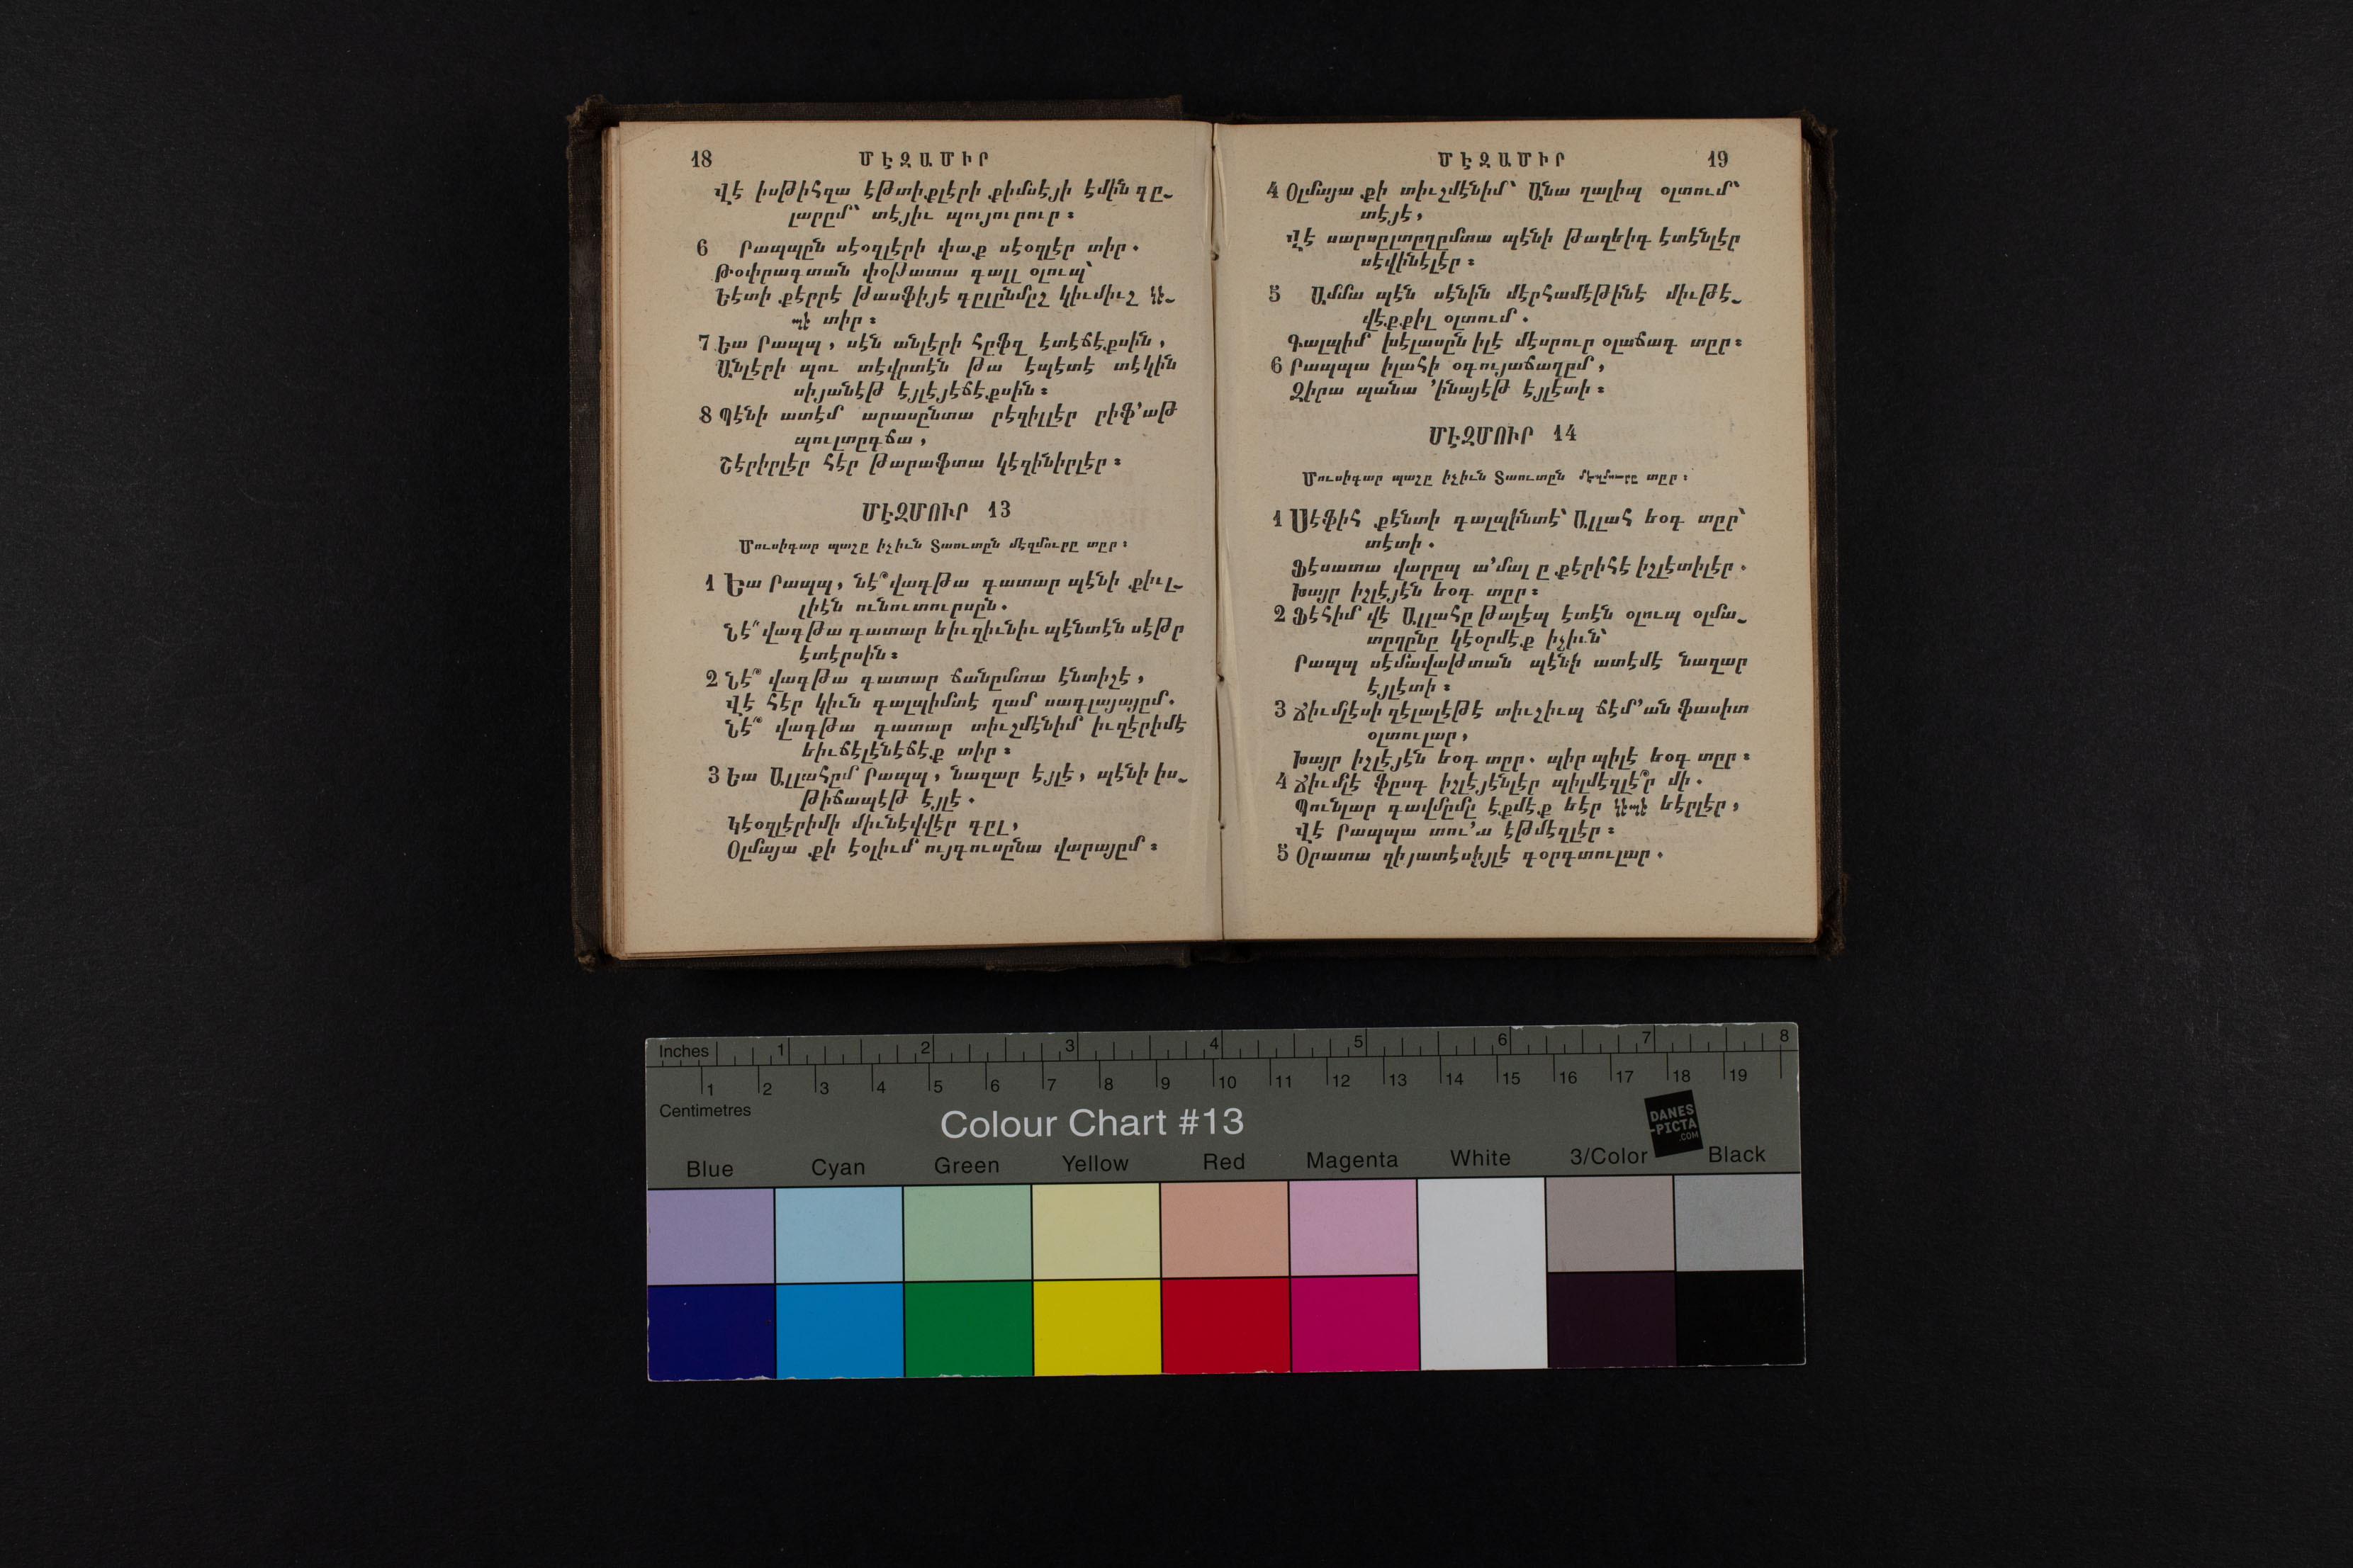 18 ՄԷԶԱՄԻՐ
Վէ իսթիհզա էթտիքլէրի քիմսէյի էմին ղը֊
լարըմ՝ տէյիւ պույուրուր։
6 Րապպըն սէօզլէրի փաք սէօզլէր տիր․
Թօփրագտան փօթատա գալլ օլուպ՝
Եէտի քէրրէ թասֆիյէ գըլընմըշ կիւմիւշ կի֊
պի տիր։
7 Եա Րապպ, սէն անլէրի հըֆզ էտէճէքսին,
Անլէրի պու տէվրտէն թա էպէտէ տէկին
սիյանէթ էյլէյեճէքսին։
8 Պէնի ատէմ արասընտա րէզիլլէր րիֆ՚աթ
պուլտըգճա,
Շէրիրլէր հէր թարաֆտա կէզինիրլէր։
ՄԷԶՄՈՒՐ 13
Մուսիգար պաշը իչիւն Տաուտըն մէզմուրը տըր։
1 Եա Րապպ, նէ՞ վագթա գատար պէնի քիւլ֊
լիէն ունուտուրսըն․
Նէ՞ վագթա գատար եիւզիւնիւ պէնտէն սէթր
էտէրսին։
2 Նէ՞ վագթա գատար ճանըմտա էնտիշէ,
Վէ հէր կիւն գալպիմտէ ղամ սագլայայըմ․
Նէ՞ վագթա գատար տիւշմէնիմ իւզէրիմէ
եիւճէլէնէճէք տիր։
3 Եա Ալլահըմ Րապպ, նազար էյլէ, պէնի իս֊
թիճապէթ էյլէ․
Կէօզլէրիմի միւնէվվէր գըլ,
Օլմայա քի էօլիւմ ույգուսընա վարայըմ։
ՄԷԶԱՄԻՐ 19
4 Օլմայա քի տիւշմէնիմ՝ Անա ղալիպ օլտում՝
տէյէ,
Վէ սարսըլտըղըմտա պէնի թազեիգ էտէնլէր
սէվինէլէր։
5 Ամմա պէն սէնին մէրհամէթինէ միւթէ֊
վէքքիլ օլտում․
Գալպիմ խէլասըն իլէ մէսրուր օլաճագ տըր։
6 Րապպա իլահի օգույաճաղըմ,
Զիրա պանա ՚ինայէթ էյլէտի։
ՄԷԶՄՈՒՐ 14
Մուսիգար պաշը իչիւն Տաուտըն մէզմուրը տըր։
1 Սէֆիհ քէնտի գալպինտէ՝ Ալլահ եօգ տըր՝
տէտի․
Ֆէսատա վարըպ ա՚մալ ը քէրիհէ իշլէտիլէր․
Խայր իշլէյէն եօգ տըր։
2 Ֆէհիմ վէ Ալլահը թալէպ էտէն օլուպ օլմա֊
տըղընը կէօրմէք իչիւն՝
Րապպ սէմավաթտան պէնի ատէմէ նազար
էյլէտի։
3 Ճիւմլէսի զէլալէթէ տիւշիւպ ճէմ՚ան ֆասիտ
օլտուլար,
Խայր իշլէյէն եօգ տըր․ պիր պիլէ եօգ տըր։
4 Ճիւմլէ ֆըսգ իշլէյէնլէր պիլմէզլէ՞ր մի․
Պունլար գավմըմը էքմէք եէր կիպի եէրլէր,
Վէ Րապպա տու՚ա էթմէզլէր։
5 Օրատա զիյատէսիյլէ գօրգտուլար․
Inches 1 2 3 4 5 6 7 8
1 2 3 4 5 6 7 8 9 10 11 12 13 14 15 16 17 18 19
Centimetres
Colour Chart #13
DANES
-PICTA
.COM
Blue Cyan Green Yellow Red Magenta White 3/Color Black